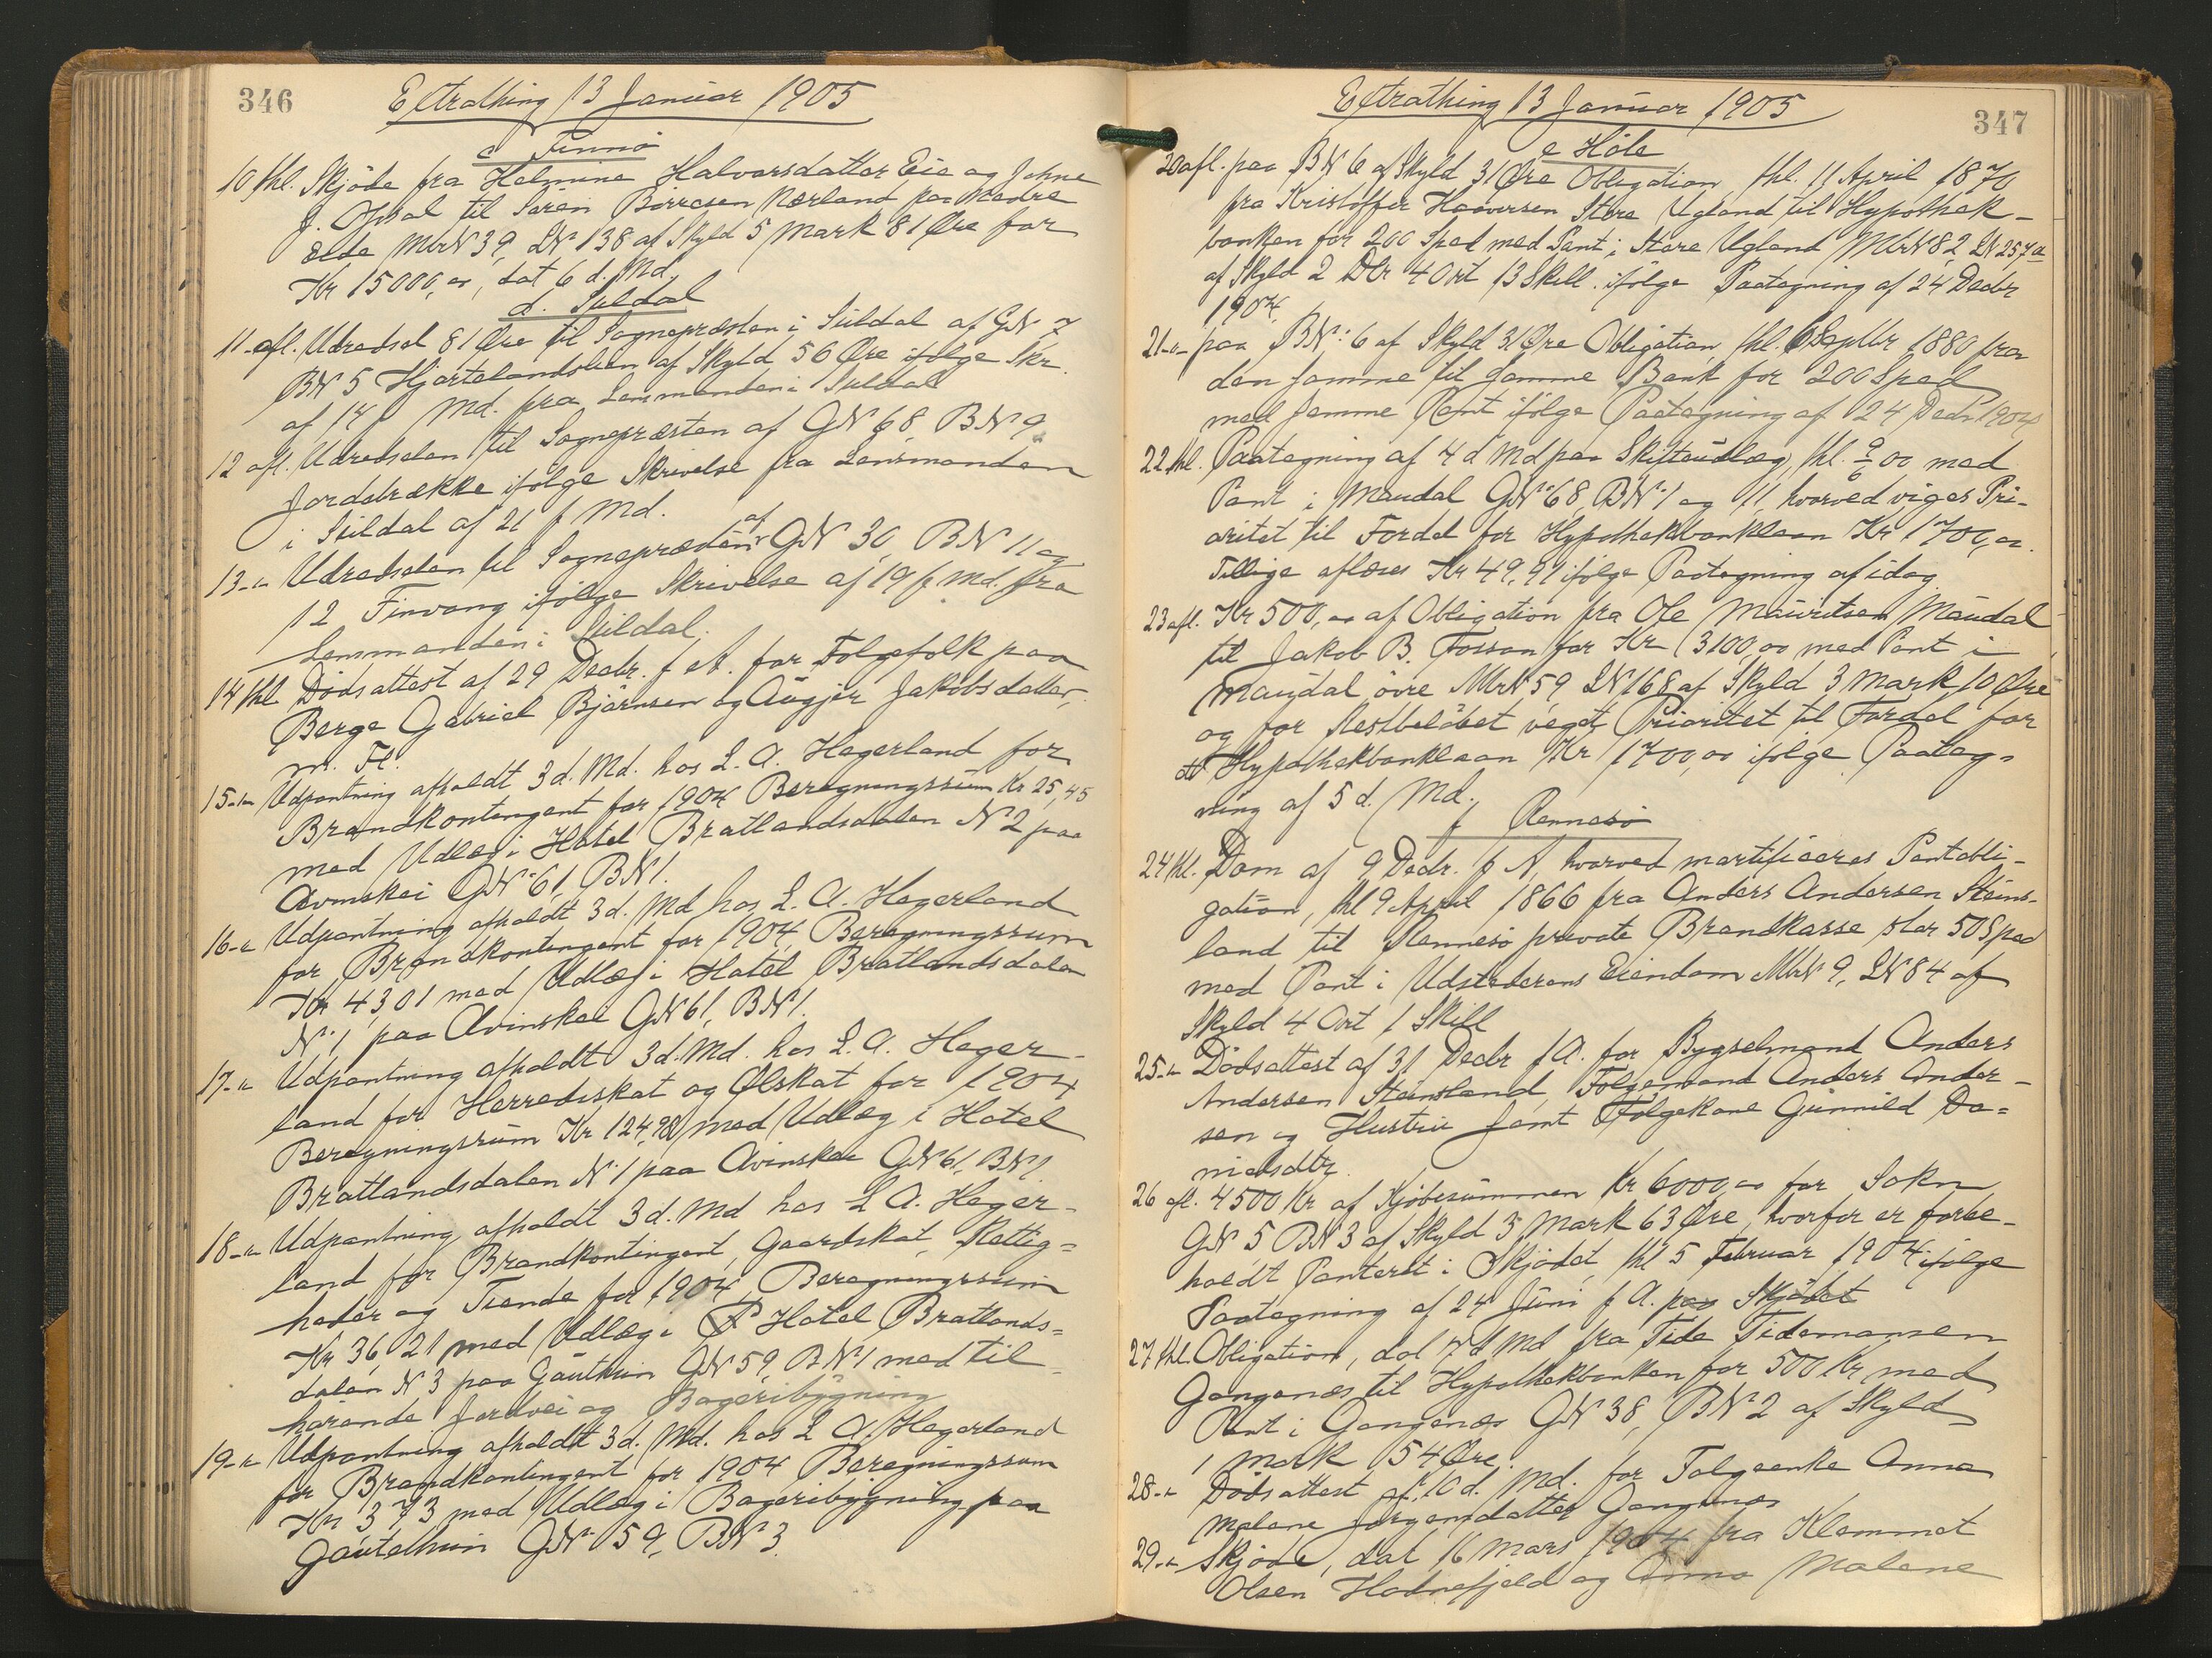 346
Extrathing 13 Januar 1905
c Finnö
10 thl. Skjöde fra Helmine Halvorsdatter Eie og Johne
J. Opsal til Sören Börresen Nærland paa Nedre
Eide MtrN 39, LN 138 af Skyld 5 Mark 81 Øre for
Kr 15000,oo, dat 6 d. Md.
d. Suldal
11-afl. Udredsel 81 Øre til Sognepræsten i Suldal af GN 7
BN 5 Hjortelandslien af Skyld 56 Øre ifölge Skr.
af 14 f Md. fra Lensmanden i Suldal
12 afl. Udredselen til Sognepræsten af GN 68, BN 9
Jordebrække ifölge Skrivelse fra Lensmanden
i Suldal af 21 f Md.
13-"- Udredselen til Sognepræsten af GN 30, BN 11 og
12 Finvang ifölge Skrivelse af 19 f Md. fra
Lensmanden i Suldal.
14 thl. Dödsattest af 29 Decbr. f A. for Folgefolk paa
Berge Gabriel Bjørnsen og Augjer Jakobsdatter,
m. Fl.
15-"- Udpantning afholdt 3 d. Md. hos L. A. Hegerland for
Brandkontingent for 1904 Beregningssum Kr 25,45
med Udlæg i Hotel Bratlandsdalen N 2 paa
Ovinskei GN 61, BN 1.
16-"- Udpantning afholdt 3 d. Md hos L. A. Hegerland
for Brandkontingent for 1904 Beregningssum
Kr 43,01 med Udlæg i Hotel Bratlandsdalen
N 1 paa Ovinskei GN 61, BN 1.
17-"- Udpantning afholdt 3 d. Md. hos L. A. Heger-
land for Herredsskat og Ølskat for 1904
Beregningssum Kr 124,98 med Udlæg i Hotel
Bratlandsdalen N 1 paa Ovinskei GN 61, BN 1.
18-"- Udpantning afholdt 3 d. Md hos L A. Heger-
land for Brandkontingent, Gaardskat, Rettig=
heder og Tiende for 1904, Beregningssum
Kr 36,21 med Udlæg i Hotel Bratlands=
dalen N 3 paa Gauthun GN 59, BN 1 med til-
hörende Jordvei og Bageribygning
19-"- Udpantning afholdt 3 d. Md. hos L A. Hegerland
for Brandkontingent for 1904 Beregningssum
Kr 3,73 med Udlæg i Bageribygning paa
Gautelhun GN 59, BN 3.
347
Extrathing 13 Januar 1905
e Höle
20 afl. paa BN 6 af Skyld 31 Øre Obligation, thl. 11 April 1870
fra Kristoffer Haaversen Store Ugland til Hypothek-
banken for 200 Spd med Pant i Store Ugland MtrN 82 LN 257a
af Skyld 2 Dlr 4 Ort 13 Skill. ifölge Paategning af 24 Decbr
1904.
21-"- paa BN: 6 af Skyld 31 Øre Obligation, thl. 6 Septbr 1880 fra
den samme til samme Bank for 200 Spd
med samme Pant ifölge Paategning af 24 Decbr 1904
22 thl. Paategning af 4 d Md paa Skifteudlæg, thl. 9/6 00 med
Pant i Maudal GN 68, BN 1 og 11, hvorved viges Pri-
oritet til Fordel for Hypothekbanklaan Kr 1700,oo.
Tillige aflæses Kr 49,91 ifölge Paategning af idag
23 afl. Kr 500,oo af Obligation fra Ole Mauritsen Maudal
til Jakob B. Fossan for Kr 3100,oo med Pant i
Maudal övre MtrN 59 LN 168 af Skyld 3 Mark 10 Øre
og for Restbelöbet veget Prioritet til Fordel for
Hypothekbanklaan Kr 1700,oo ifölge Paateg-
ning af 5 d. Md.
f Rennesö
24 thl. Dom af 9 Decbr. f A, hvorved mortificeres Pantobli-
gation, thl 9 April 1866 fra Anders Andersen Steins-
land til Rennesö private Brandkasse stor 50 Spd
med Pant i Udstederens Eiendom MtrN 9, LN 84 af
Skyld 4 Ort 1 Skill
25-"- Dödsattest af 31 Decbr f A. for Bygselmand Anders
Andersen Steinsland, Folgemand Anders Ander-
sen og Hustru samt Folgekone Gunnild Da=
nielsdtr.
26 afl. 4500 Kr af Kjöbesummen Kr 6000,oo for Sokn
GN 5 BN 3 af Skyld 3 Mark 63 Øre, hvorfor er forbe-
holdt Panteret i Skjödet, thl 5 Februar 1904 ifölge
Paategning af 24 Juni f A. paa Skjödet
27 thl. Obligation, dat 7 d Md fra Tide Tidemansen
Gangenæs til Hypothekbanken for 500 Kr med
Pant i Gangenæs GN 38, BN 2 af Skyld
1 Mark 54 Øre.
28-"- Dödsattest af 10 d. Md. for Folgeenke Anna
Malene Jørgensdatter Gangenæs
29-"- Skjöde, dat 16 Mars 1904 fra Klemmet
Olsen Hodnefjeld og Anna Malene